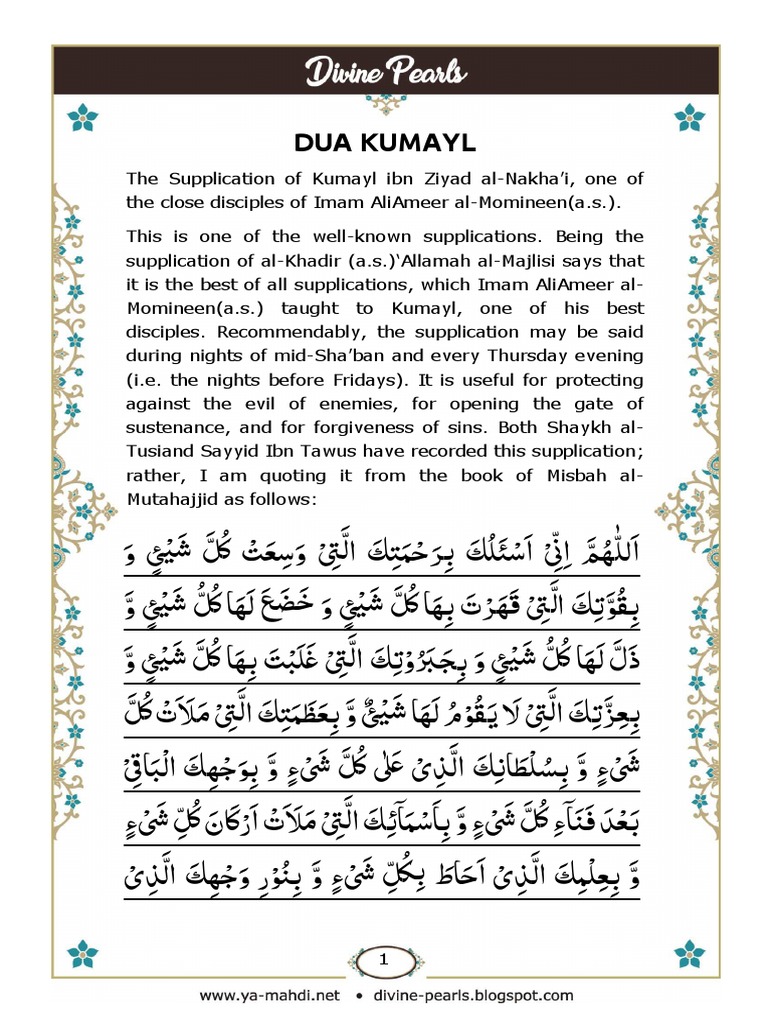 Divine Pearls
DUA KUMAYL
The Supplication of Kumayl ibn Ziyad al-Nakha’i, one of
the close disciples of Imam AliAmeer al-Momineen(a.s.).
This is one of the well-known supplications. Being the
supplication of al-Khadir (a.s.)‘Allamah al-Majlisi says that
it is the best of all supplications, which Imam AliAmeer al-
Momineen(a.s.) taught to Kumayl, one of his best
disciples. Recommendably, the supplication may be said
during nights of mid-Sha’ban and every Thursday evening
(i.e. the nights before Fridays). It is useful for protecting
against the evil of enemies, for opening the gate of
sustenance, and for forgiveness of sins. Both Shaykh al-
Tusiand Sayyid Ibn Tawus have recorded this supplication;
rather, I am quoting it from the book of Misbah al-
Mutahajjid as follows:
اَللّٰهُمَّ اِنِّیْ اَسْئَلُكَ بِرَحْمَتِكَ الَّتِیْ وَسِعَتْ كُلَّ شَیْئٍ وَ
بِقُوَّتِكَ الَّتِیْ قَهَرْتَ بِهَا كُلَّ شَیْئٍ وَ خَضَعَ لَهَا كُلُّ شَیْئٍ وَّ
ذَلَّ لَهَا كُلُّ شَیْئٍ وَ بِجَبَرُوْتِكَ الَّتِیْ غَلَبْتَ بِهَا كُلَّ شَیْئٍ وَّ
بِعِزَّتِكَ الَّتِیْ لَا یَقُوْمُ لَهَا شَیْئٌ وَّ بِعَظَمَتِكَ الَّتِیْ مَلَاَتْ كُلَّ
شَیْءٍ وَّ بِسُلْطَانِكَ الَّذِیْ عَلٰی كُلَّ شَیْءٍ وَّ بِوَجْهِكَ الْبَاقِیْ
بَعْدَ فَنَآءِ كُلَّ شَیْءٍ وَّ بِاَسْمَآئِكَ الَّتِیْ مَلَاَتْ اَرْكَانَ كُلِّ شَیْءٍ
وَّ بِعِلْمِكَ الَّذِیْ اَحَاطَ بِكُلِّ شَیْءٍ وَّ بِنُوْرِ وَجْهِكَ الَّذِیْ
1
www.ya-mahdi.net • divine-pearls.blogspot.com